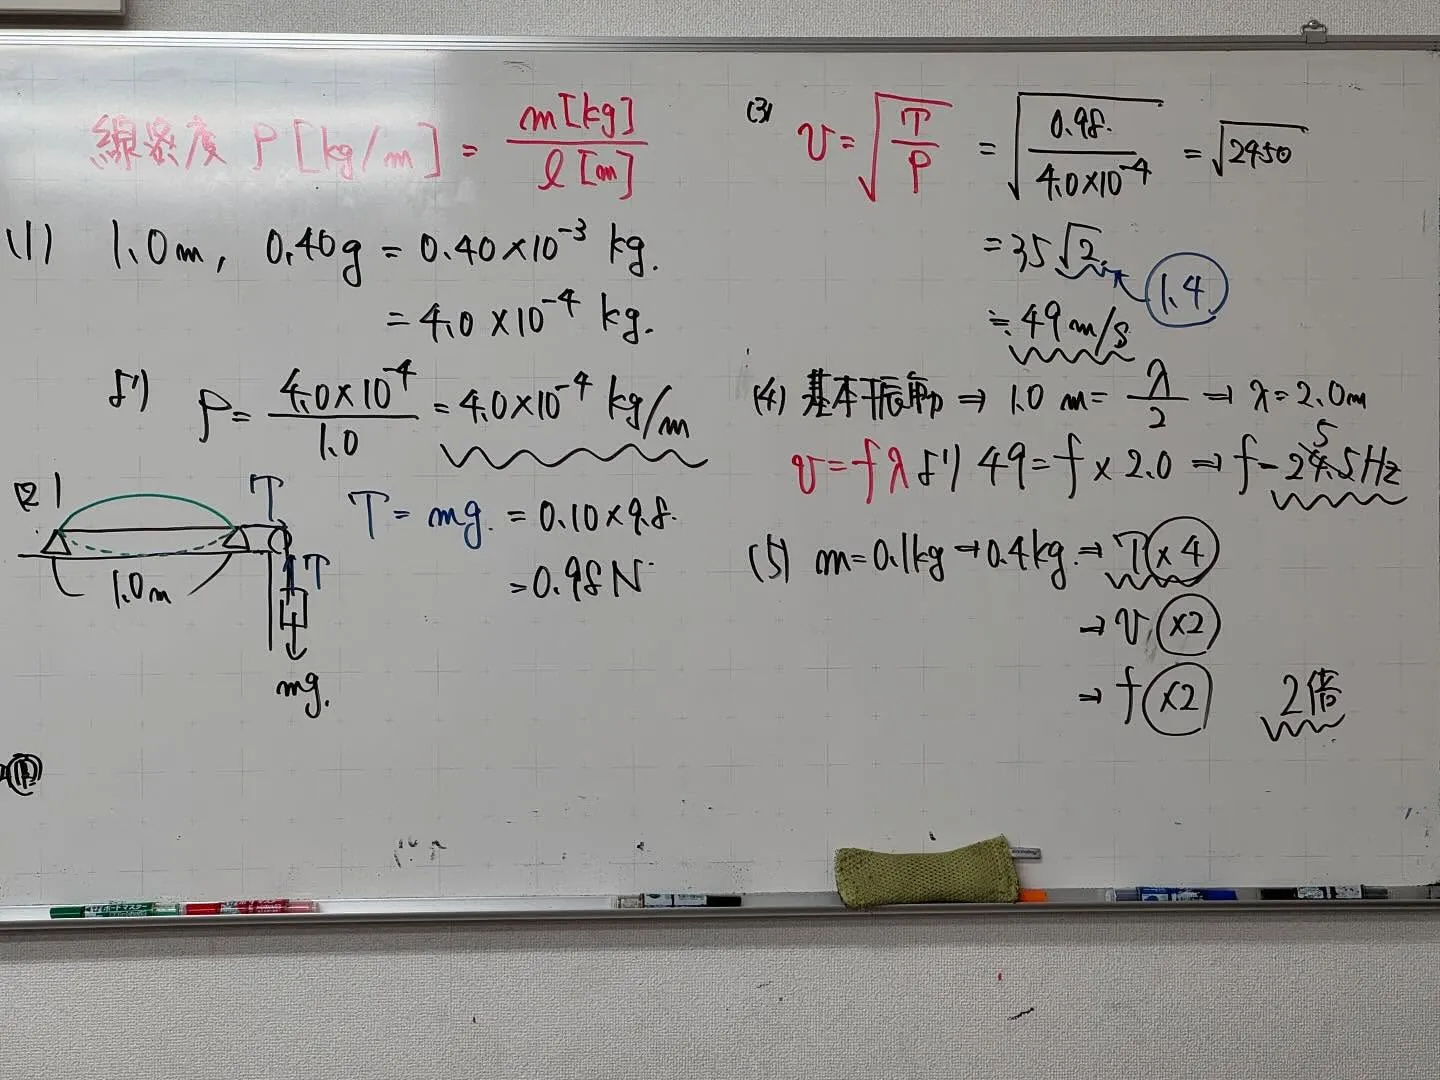 線密度 ρ [kg/m] = m[kg] / l [m]
(1) 1.0m, 0.40g = 0.40×10⁻³ kg.
= 4.0×10⁻⁴ kg.
より ρ = 4.0×10⁻⁴ / 1.0 = 4.0×10⁻⁴ kg/m
(2) T T = mg. = 0.10×9.8.
T = 0.98N
1.0m
mg.
(3) v = √(T/ρ) = √(0.98. / 4.0×10⁻⁴) = √2450
= 35√2. 1.4
≒ 49m/s
(4) 基本振動 ⇒ 1.0 m = λ/2 ⇒ λ = 2.0m
v = fλ より 49 = f × 2.0 ⇒ f = 24.5Hz
5
(5) m = 0.1kg → 0.4kg. ⇒ T ×4
→ v ×2
→ f ×2 2倍